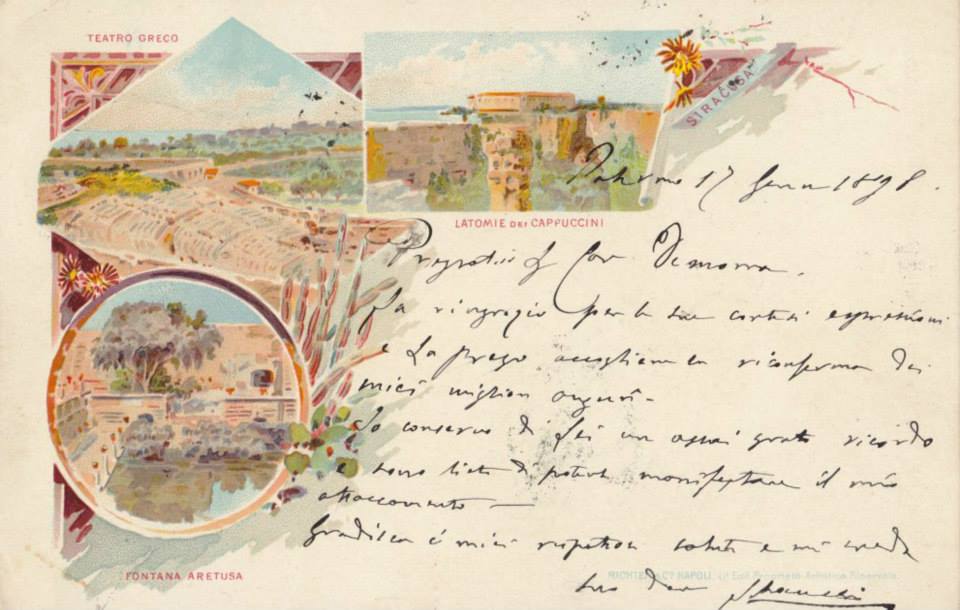 TEATRO GRECO
SIRACUSA
LATOMIE DEI CAPPUCCINI
Palermo 17 Genn 1898.
Cav Demarra.
La ringrazio per le sue cortesi espressioni
e La prego accogliere la riconferma dei
miei migliori auguri-
Io conservo di Lei un assai grato ricordo
e sono lieto di poterle manifestare il mio
attaccamento —
Gradisca i miei rispettosi saluti e mi creda
Suo Dev
FONTANA ARETUSA
RICHTER & Cº NAPOLI,